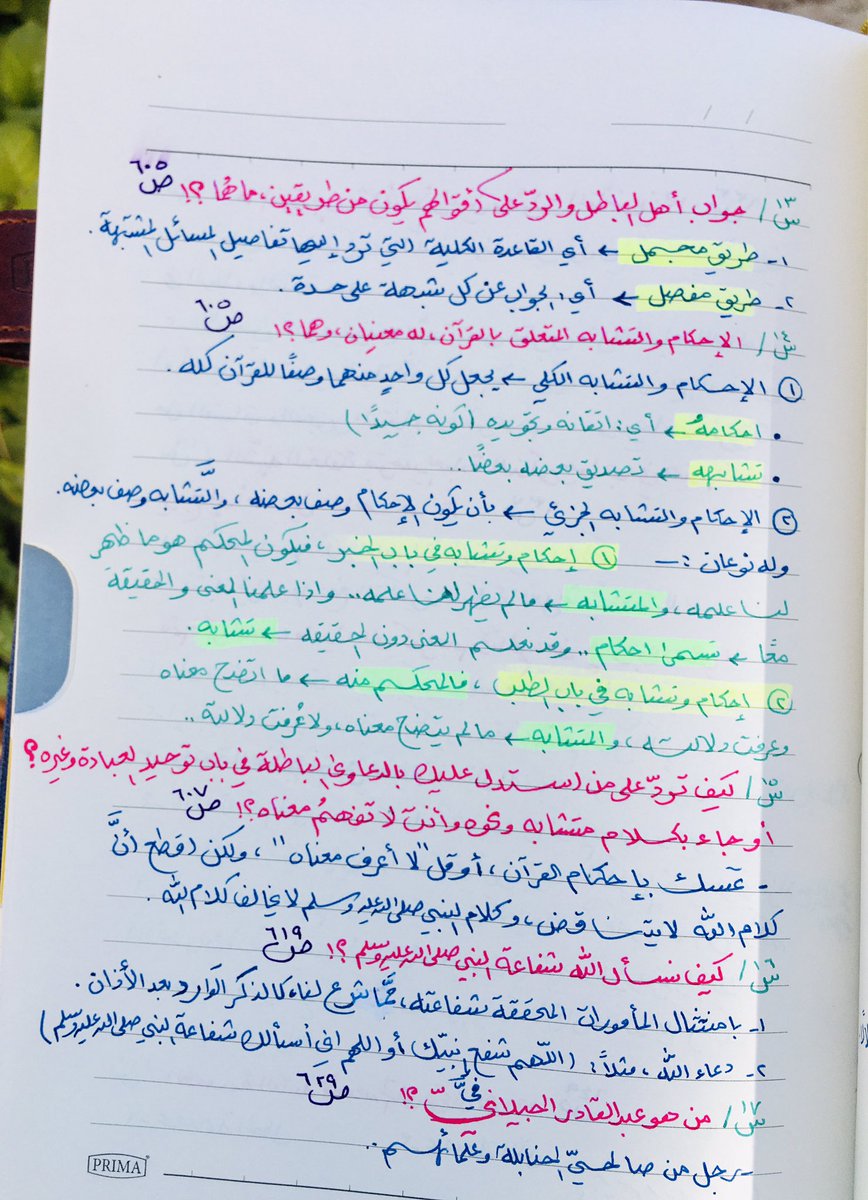 س١٣/ جواب أهل الباطل والردّ على أقوالهم يكون من طريقين، ما هُما ؟! ص٦٠٥
١- طريق مجمل ← أي القاعدة الكلية التي ترد إليها تفاصيل المسائل المشتبهة.
٢- طريق مفصل ← أي: الجواب عن كل شبهة على حدة.
س١٤/ الإحكام والتشابه المتعلق بالقرآن، له معنيان، وهما ؟! ص٦٠٥
① الإحكام والتشابه الكلي ← يجعل كل واحدٍ منهما وصفًا للقرآن كله.
• احكامهُ ← أي: اتقانه وتجويده (كونه جيدًا)
• تشابهه ← تصديق بعضه بعضًا..
② الإحكام والتشابه الجزئي ← بأن يكون الإحكام وصف بعضه، والتَّشابه وصف بعضه.
وله نوعان :— ① إحكام وتشابه في باب الخبر، فيكون المحكم هو ما ظهر
لنا علمه، والمتشابه ← مالم يظهر لنا علمه.. واذا علمنا المعنى والحقيقة
معًا ← تسمى احكام.. وقد نعلم المعنى دون الحقيقه ← تشابه.
② إحكام وتشابه في باب الطلب، فالمحكم منه ← ما اتضح معناه
وعرفت دلالته، والمتشابه ← مالم يتضح معناه، ولا عُرفت دلالته..
س١٥/ كيف تردّ على من استدل عليك بالدعاوى الباطلة في باب توحيد العبادة وغيره؟
أو جاء بكلام متشابه ونحوه وأنت لا تفهمُ معناه ؟! ص٦٠٧
- تمسك بإحكام القرآن، أو قل "لا أعرف معناه"، ولكن اقطع أنَّ
كلام الله لا يتناقض، وكلام النبي صلى الله عليه وسلم لا يخالف كلام الله.
س١٦/ كيف نسأل الله شفاعة النبي صلى الله عليه وسلم ؟! ص٦١٩
١- بامتثال المأمورات المحققة شفاعته، ممَّا شرع لنا، كالذكر الوارد بعد الأذان.
٢- دعاء الله، مثلاً: (اللّهم شفع فيَّ نبيّك أو اللهم اني أسألك شفاعة النبي صلى الله عليه وسلم)
س١٧/ من هو عبد القادر الجيلانيّ ؟! ص٦٢٩
- رجل من صالحيّ الحنابلة وعلمائهم..
PRIMA